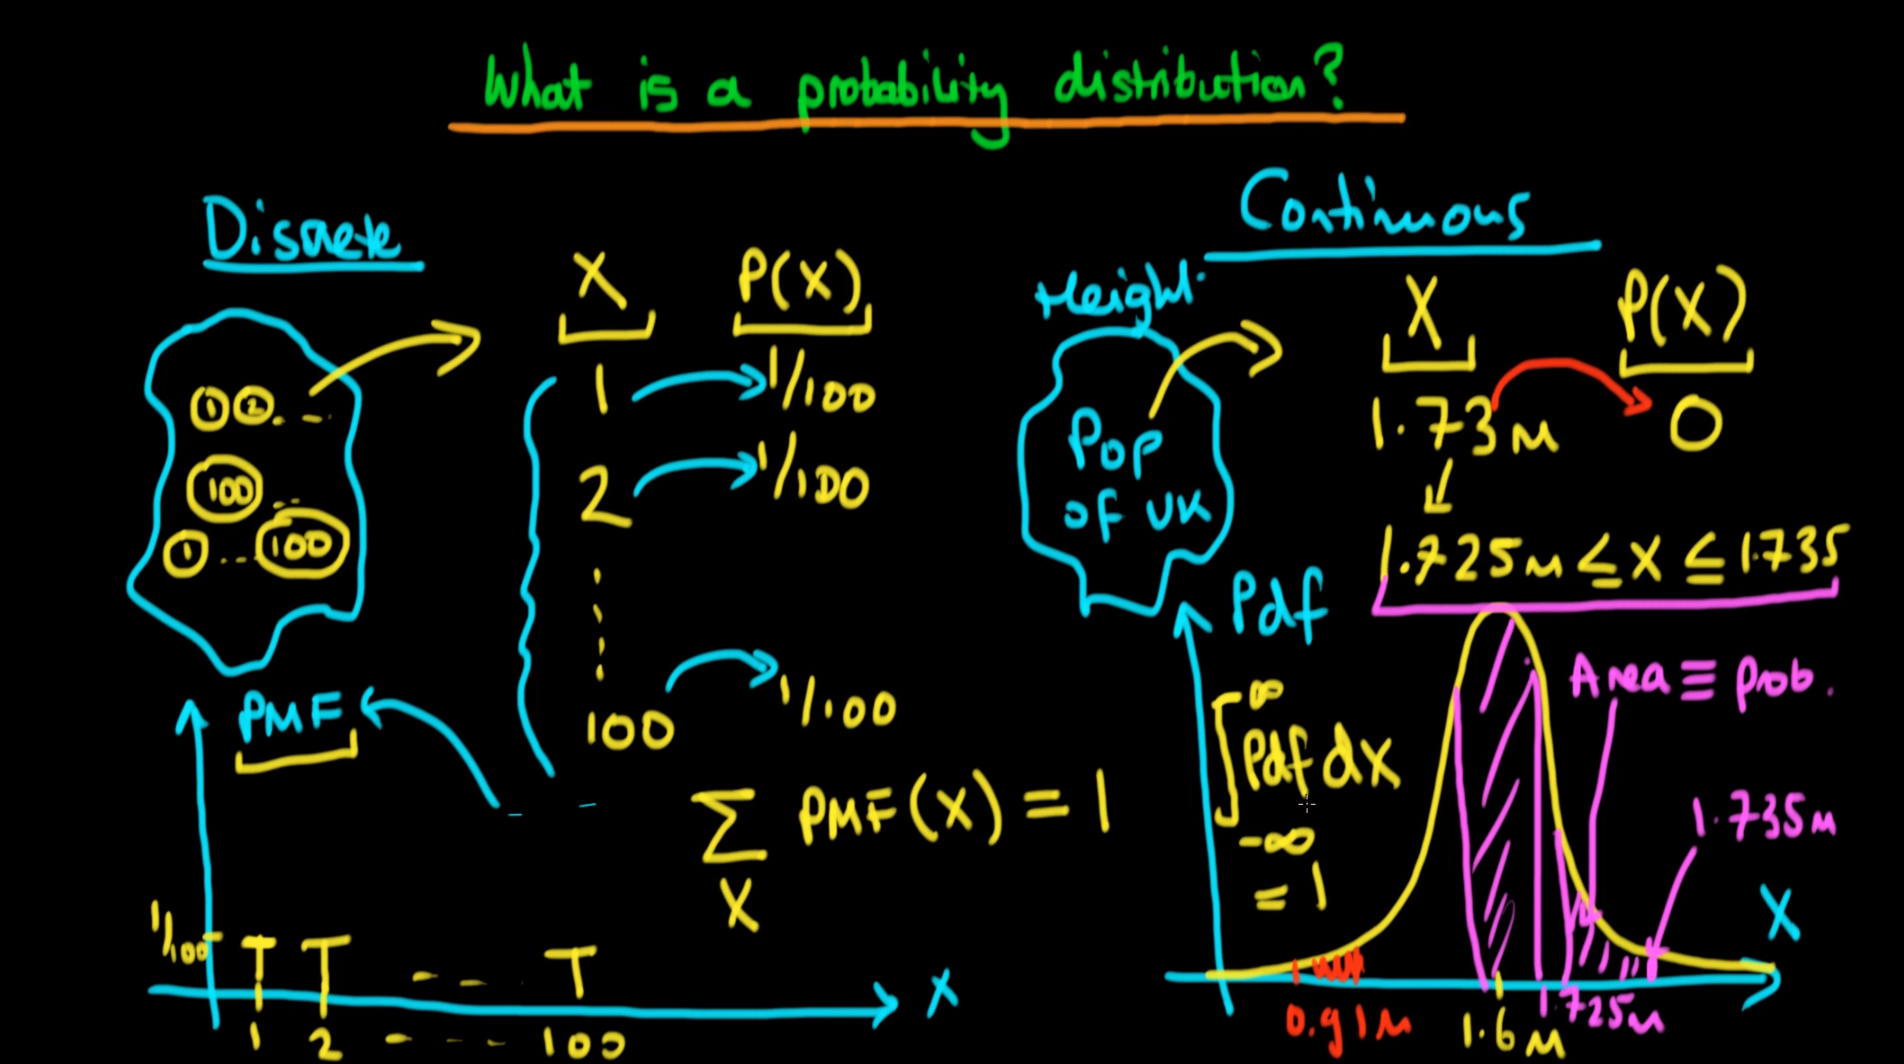 What is a probability distribution?
Discrete
1 2 . - -
100 - -
1 - - - 100
X P(X)
1 1/100
2 1/100
100 1/100
PMF
∑ PMF(X) = 1
X
1/100
1 2 - - - - 100
X
Continuous
Height
Pop
of UK
X P(X)
1.73m 0
1.725m ≤ X ≤ 1.735
Pdf
Area ≡ prob.
∞
∫ Pdf dx
-∞
= 1
1.735m
X
0.91m
1.6m
1.725m